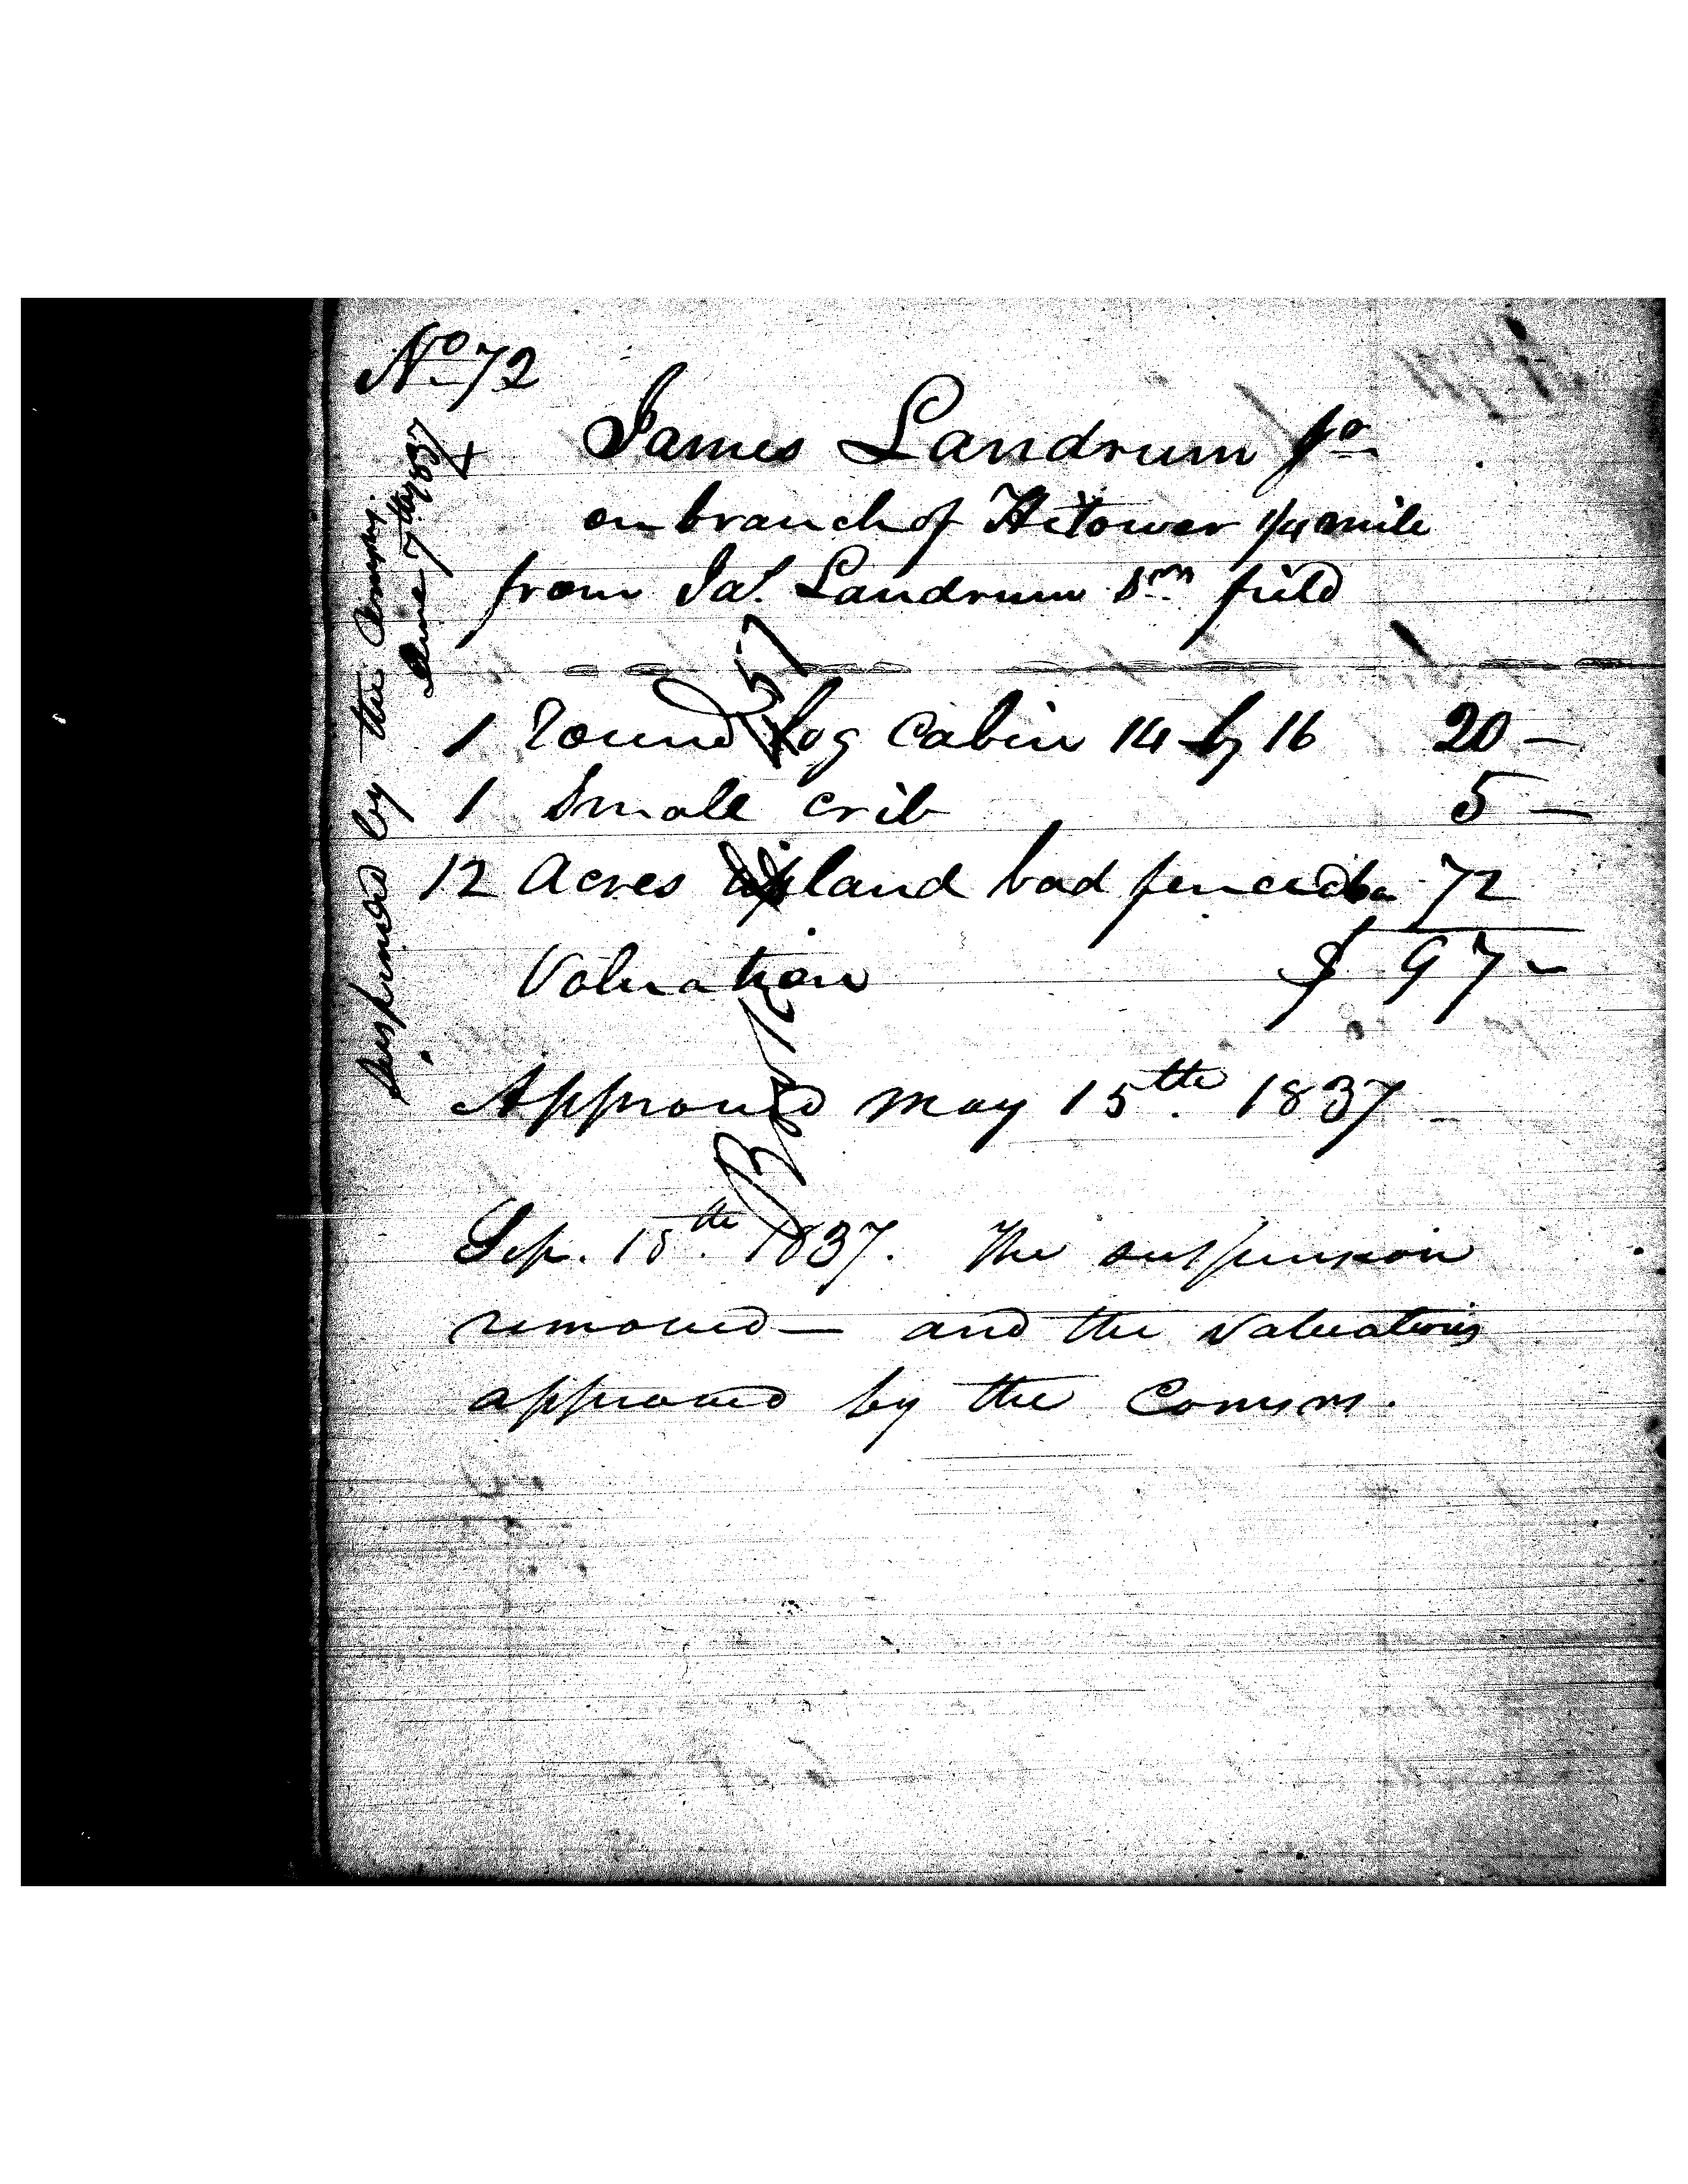 No 72
James Landrum Jr
on branch of Hitower 1/4 mile
from Jas. Landrum Snr field
1 round log cabin 14 by 16 20 —
1 Small crib 5 —
12 Acres upland bad fence 72
Valuation $ 97 —
Approved May 15th. 1837
Sep. 15th. 1837. The suspension
removed — and the valuations
approved by the Comm.
Suspended by the
June 7th 1837
Book
57